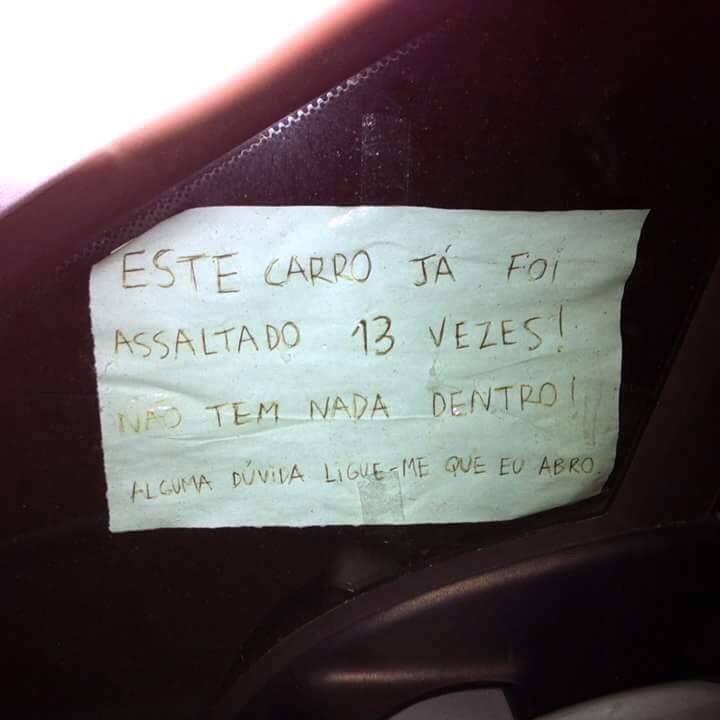 ESTE CARRO JÁ FOI
ASSALTADO 13 VEZES!
NÃO TEM NADA DENTRO!
ALGUMA DÚVIDA LIGUE-ME QUE EU ABRO.